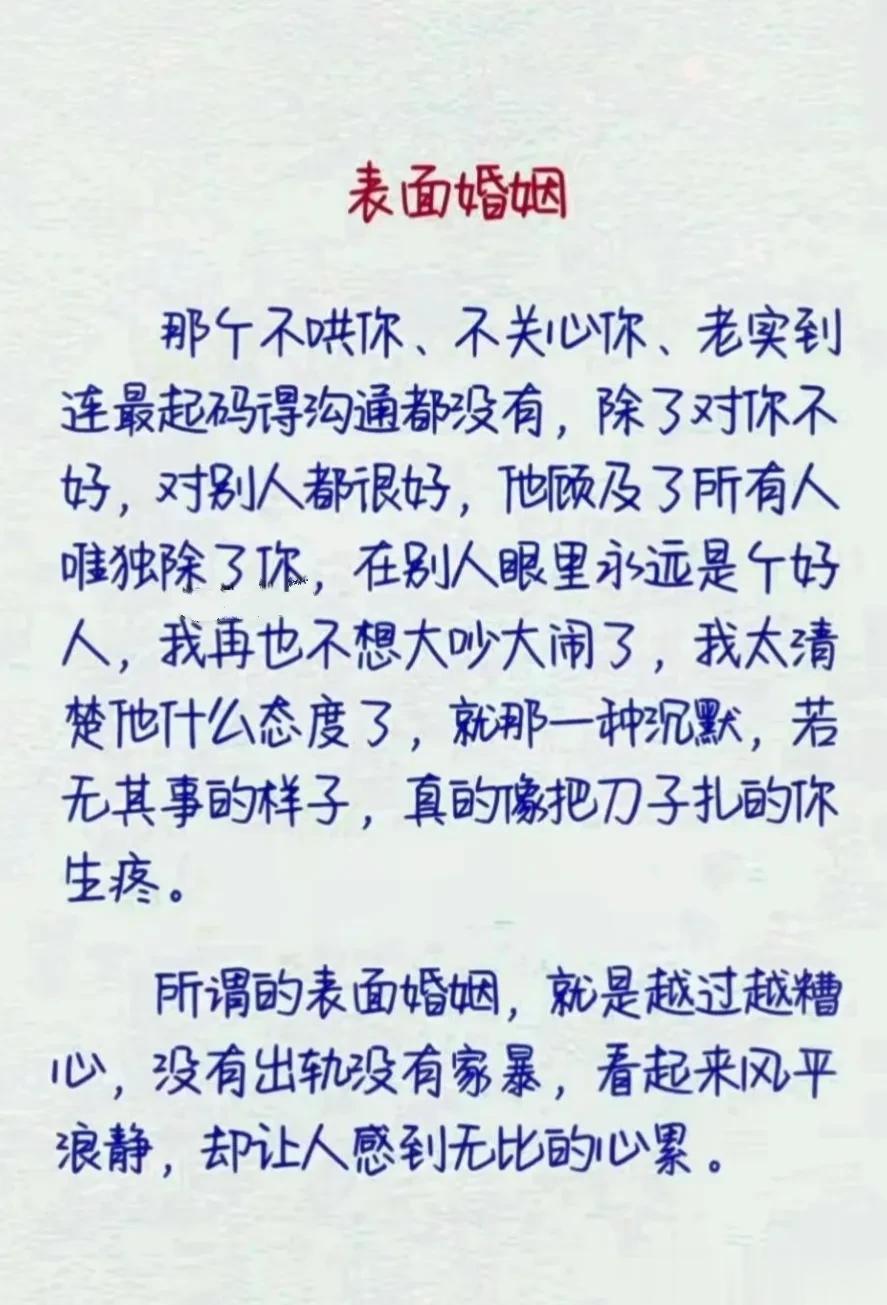 表面婚姻
那个不哄你、不关心你、老实到
连最起码得沟通都没有，除了对你不
好，对别人都很好，他顾及了所有人
唯独除了你，在别人眼里永远是个好
人，我再也不想大吵大闹了，我太清
楚他什么态度了，就那一种沉默，若
无其事的样子，真的像把刀子扎的你
生疼。
所谓的表面婚姻，就是越过越糟
心，没有出轨没有家暴，看起来风平
浪静，却让人感到无比的心累。